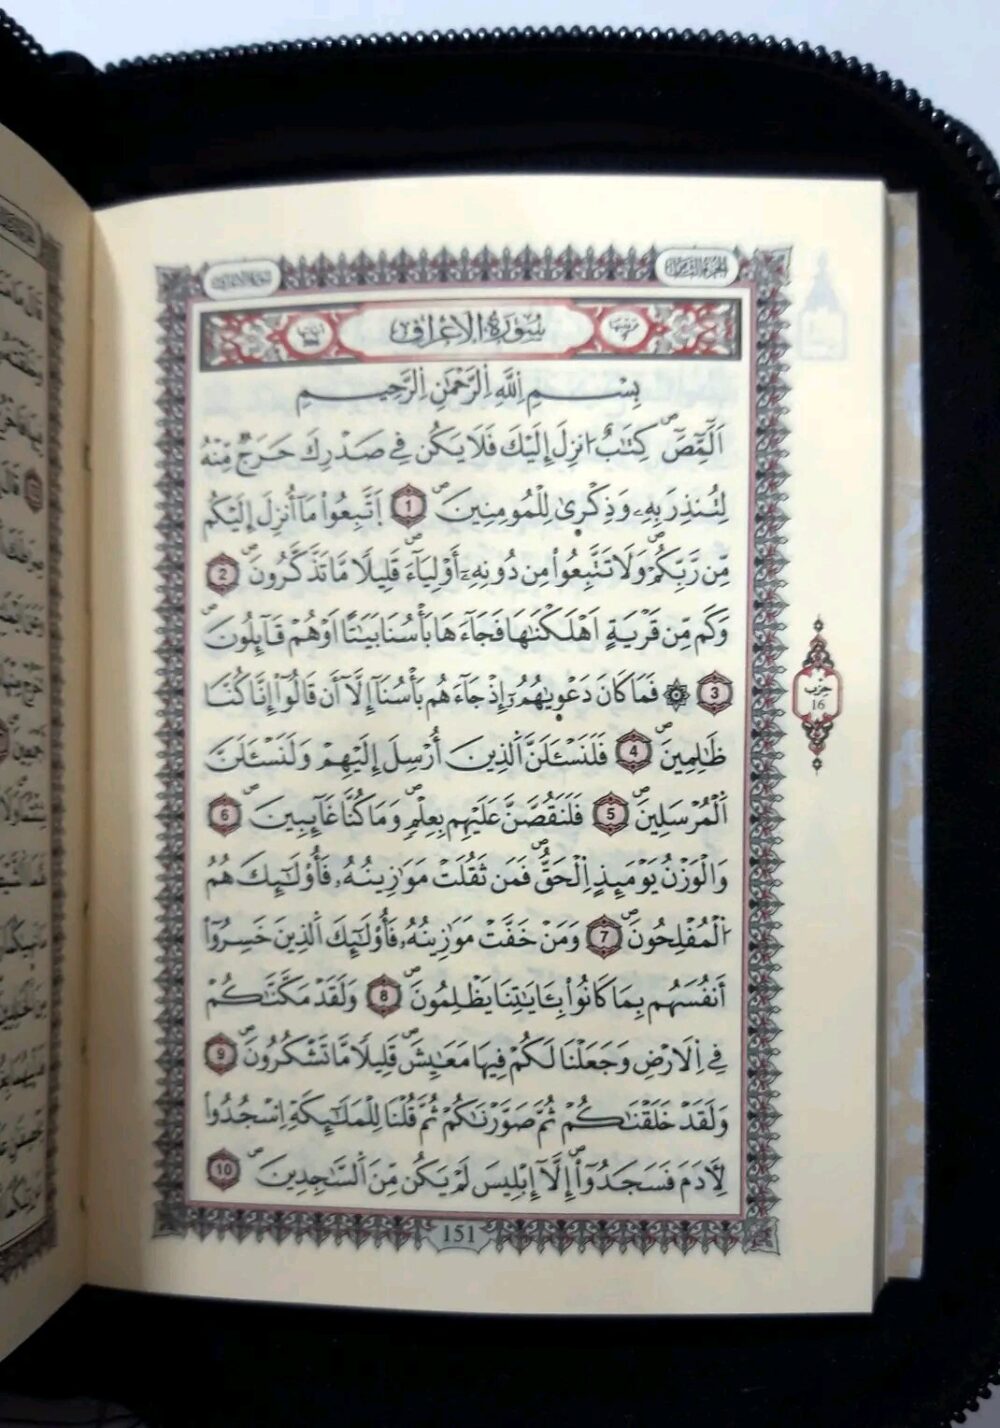 سُورَةُ الَاعْرَافِ
بِسْمِ اِللَّهِ اِلرَّحْمَٰنِ اِلرَّحِيمِ
أَلَٓمِّٓصَٓ كِتَٰبٌ ا۟نزِلَ إِلَيْكَ فَلَا يَكُن فِے صَدْرِكَ حَرَجٌ مِّنْهُ
لِتُنذِرَ بِهِۦ وَذِكْر۪يٰ لِلْمُومِنِينَ 1 اَ۪تَّبِعُوا۟ مَآ أُنزِلَ إِلَيْكُم
مِّن رَّبِّكُمْ وَلَا تَتَّبِعُوا۟ مِن دُونِهِۦٓ أَوْلِيَآءَ قَلِيلًا مَّا تَذَّكَّرُونَ 2
وَكَم مِّن قَرْيَةٍ اَهْلَكْنَٰهَا فَجَآءَهَا بَأْسُنَا بَيَٰتًا اَوْ هُمْ قَآئِلُونَ
3 ۞ فَمَا كَانَ دَعْو۪يٰهُمُۥٓ إِذْ جَآءَهُم بَأْسُنَآ إِلَّآ أَن قَالُوٓا۟ إِنَّا كُنَّا
ظَٰلِمِينَ 4 فَلَنَسْـَٔلَنَّ اَ۬لذِينَ أُرْسِلَ إِلَيْهِمْ وَلَنَسْـَٔلَنَّ
اَ۬لْمُرْسَلِينَ 5 فَلَنَقُصَّنَّ عَلَيْهِم بِعِلْمٍ وَمَا كُنَّا غَآئِبِينَ 6
وَالْوَزْنُ يَوْمَئِذٍ اِ۬لْحَقُّ فَمَن ثَقُلَتْ مَوَٰزِينُهُۥ فَأُو۟لَٰٓئِكَ هُمُ
اُ۬لْمُفْلِحُونَ 7 وَمَنْ خَفَّتْ مَوَٰزِينُهُۥ فَأُو۟لَٰٓئِكَ اَ۬لذِينَ خَسِرُوٓا۟
أَنفُسَهُم بِمَا كَانُوا۟ بِـَٔايَٰتِنَا يَظْلِمُونَ 8 وَلَقَدْ مَكَّنَّٰكُمْ
فِے اِ۬لَارْضِ وَجَعَلْنَا لَكُمْ فِيهَا مَعَٰيِشَ قَلِيلًا مَّا تَشْكُرُونَ 9
وَلَقَدْ خَلَقْنَٰكُمْ ثُمَّ صَوَّرْنَٰكُمْ ثُمَّ قُلْنَا لِلْمَلَٰٓئِكَةِ اِ۟سْجُدُوا۟
لِأٓدَمَ فَسَجَدُوٓا۟ إِلَّآ إِبْلِيسَ لَمْ يَكُن مِّنَ اَ۬لسَّٰجِدِينَ 10
حزب
16
151